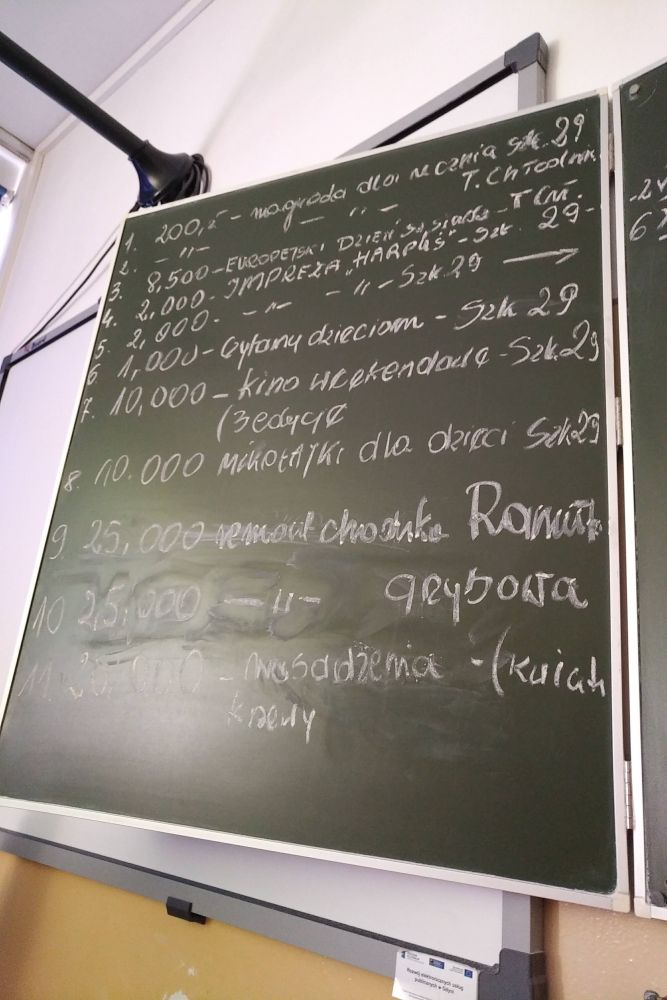 1. 200,zł - nagroda dla ucznia szk. 29
2. - „ - - „ - T. Chłodnik
3. 8,500 - EUROPEJSKI DZIEŃ - T Chł.
4. 2,000 - IMPREZA „HARPUŚ" - Szk. 29 -
5. 2,000. - „ - - „ - Szk 29 →
6 1,000 - Czytamy dzieciom - Szk 29
7. 10,000 - kino weekendowe - Szk 29
(3 edycje
8. 10.000 MIKOŁAJKI dla dzieci Szk 29
9 25,000 remont chodnika
10 25,000 - „ - GRZYBOWA
11. 20,000 - nasadzenia - (kwiaty
krzewy
Rozwój elektronicznych usług
publicznych w Gdyni